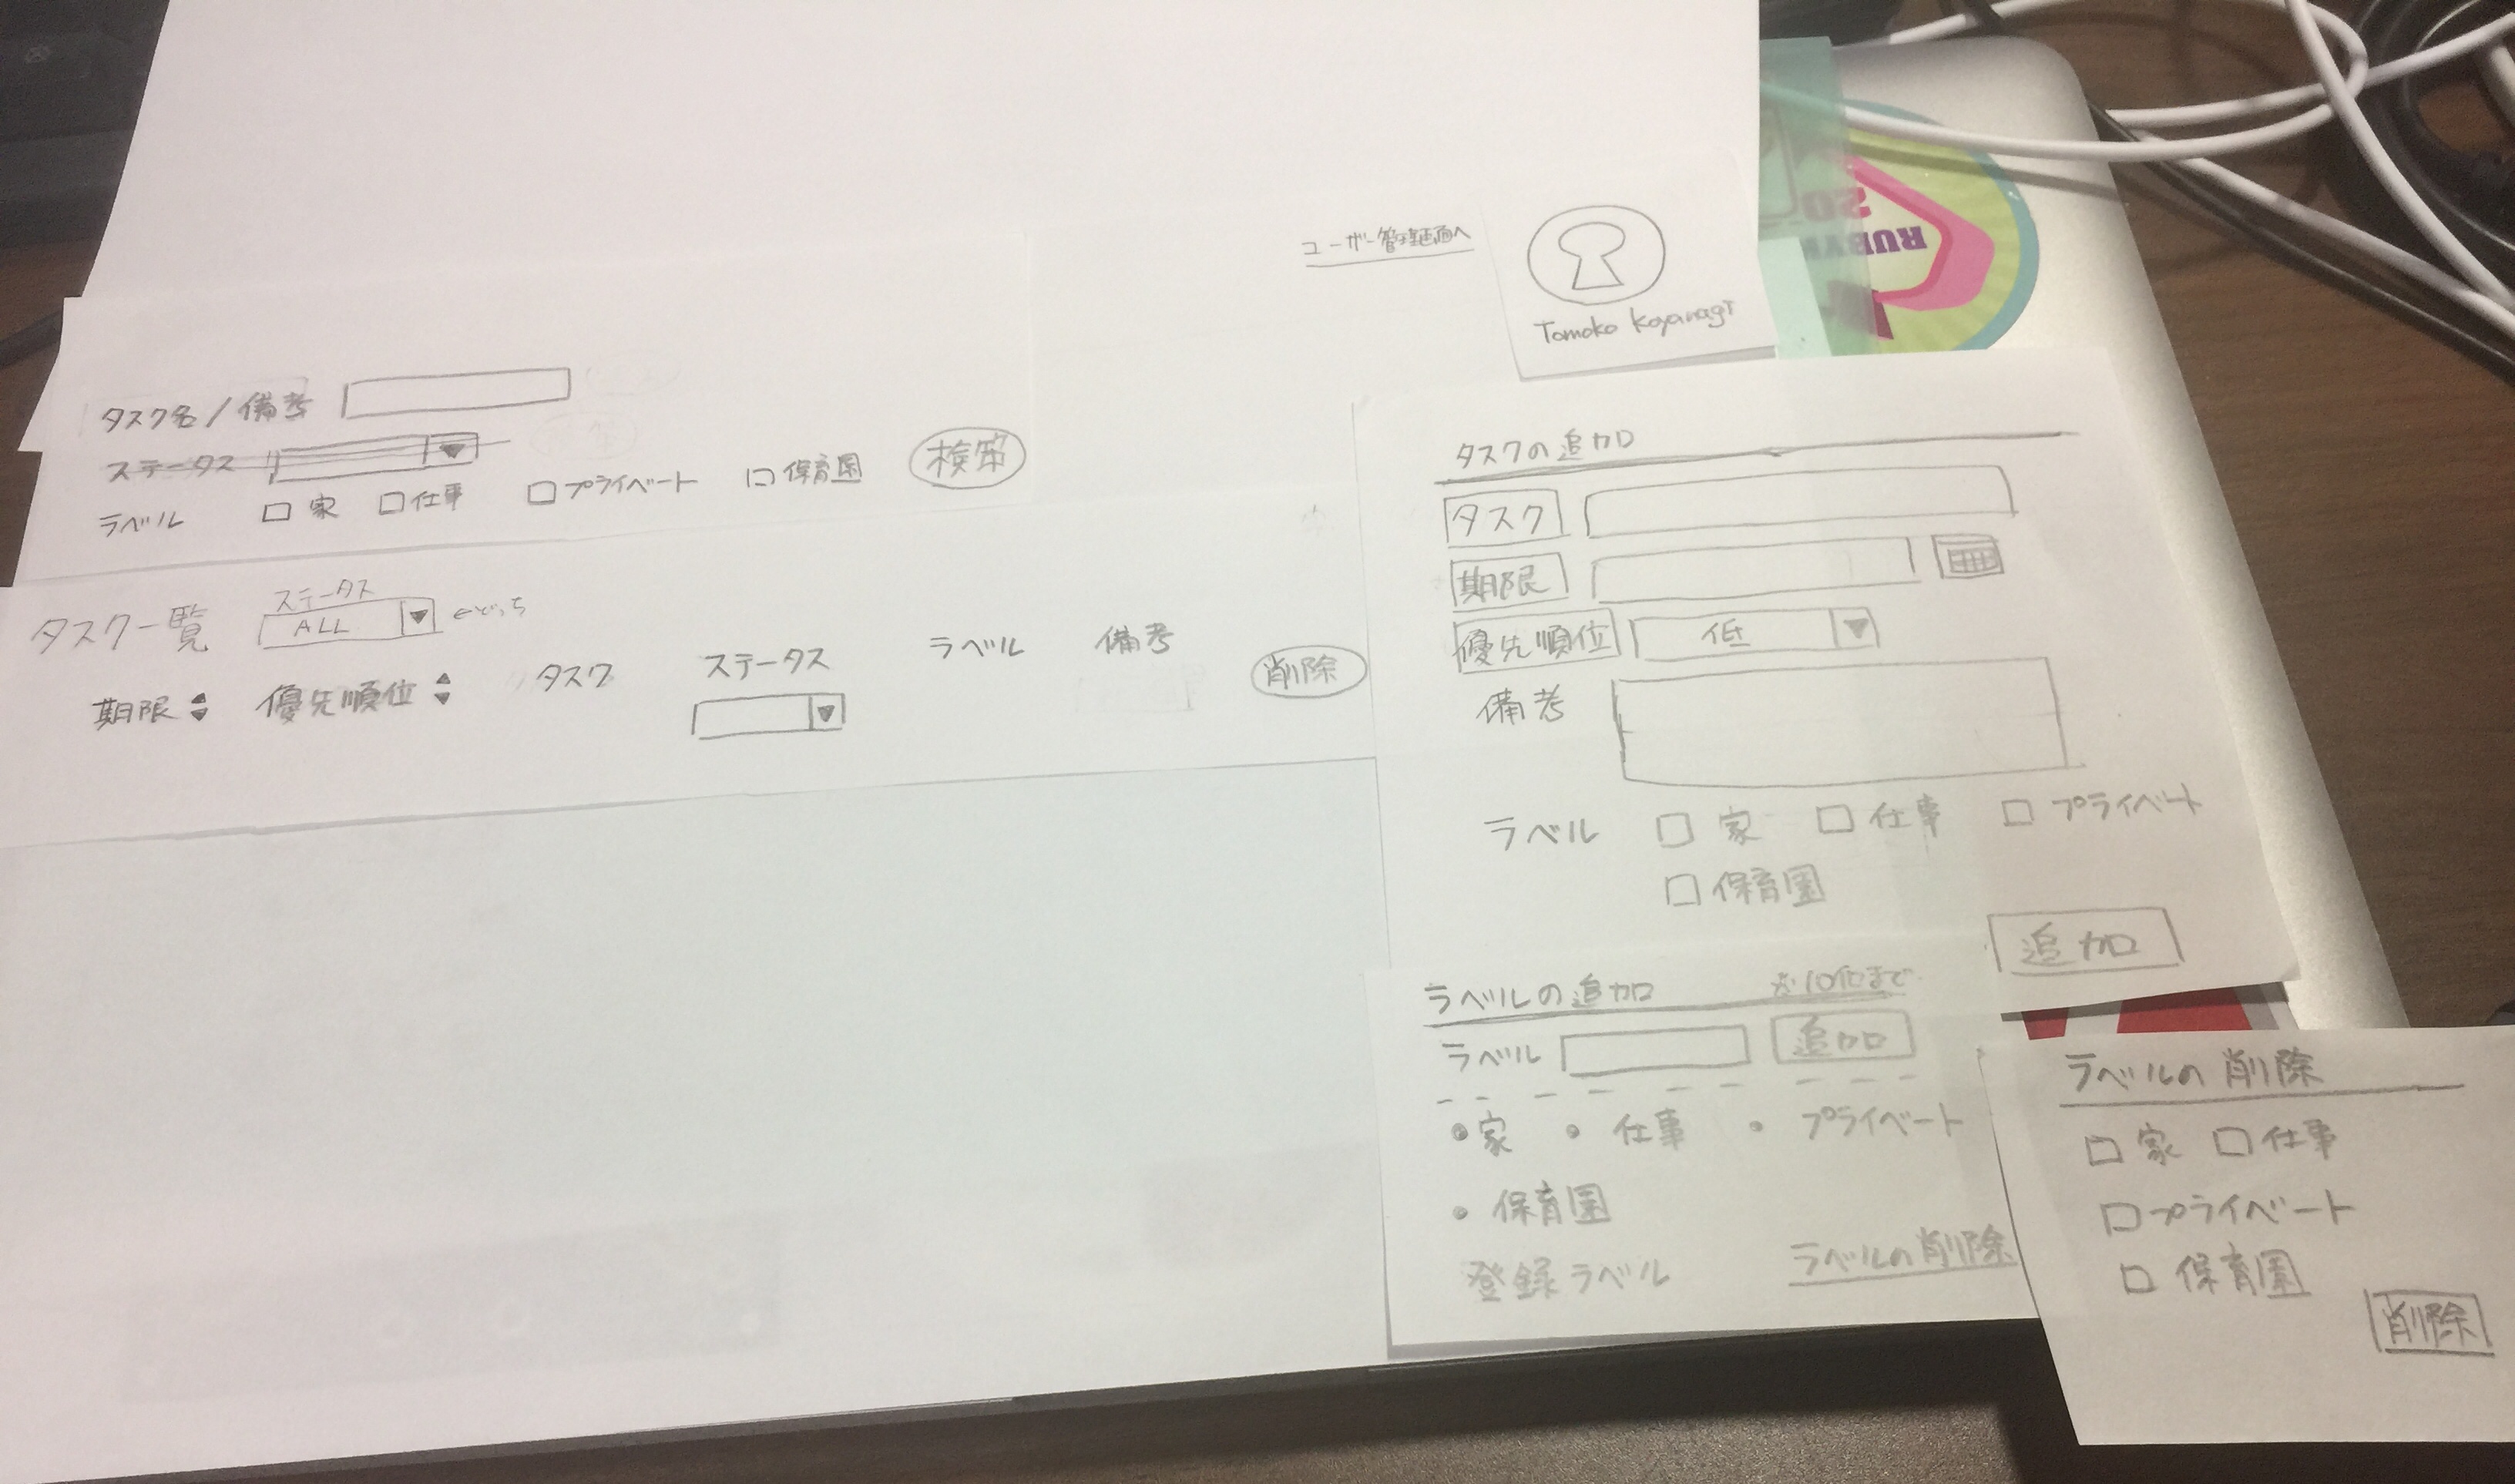 ユーザー管理画面へ
Tomoko Koyanagi
タスク名/備考
ステータス
ラベル 家 仕事 プライベート 保育園 検索
タスク一覧 ステータス ALL ←どっち
期限 優先順位 タスク ステータス ラベル 備考 削除
タスクの追加
タスク
期限
優先順位 低
備考
ラベル 家 仕事 プライベート
保育園
追加
ラベルの追加 ※10個まで
ラベル 追加
・家 ・仕事 ・プライベート
・保育園
登録ラベル ラベルの削除
ラベルの削除
家 仕事
プライベート
保育園
削除
RUBY